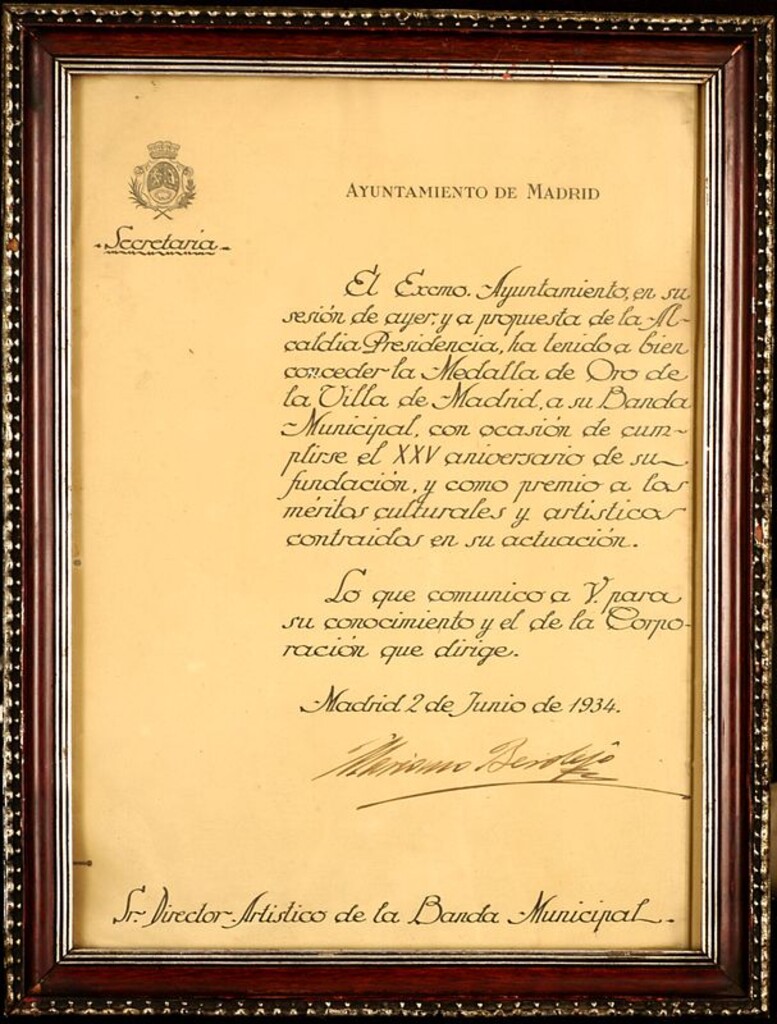 AYUNTAMIENTO DE MADRID
Secretaría
El Excmo. Ayuntamiento, en su
sesión de ayer, y a propuesta de la Al-
caldia Presidencia, ha tenido a bien
conceder la Medalla de Oro de
la Villa de Madrid, a su Banda
Municipal, con ocasión de cum-
plirse el XXV aniversario de su
fundación, y como premio a los
méritos culturales y artísticos
contraidos en su actuación.
Lo que comunico a V. para
su conocimiento y el de la Corpo-
ración que dirige.
Madrid 2 de Junio de 1934.
Mariano Berdejo
Sr. Director Artístico de la Banda Municipal.